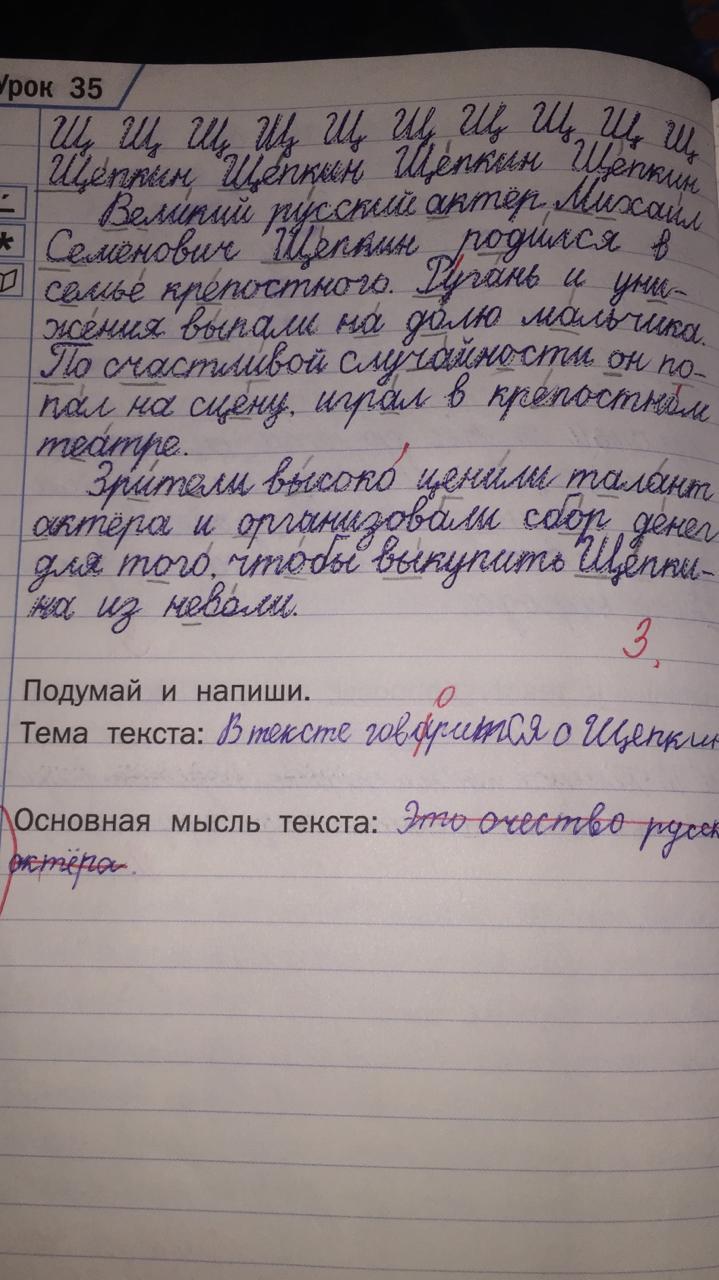 Урок 35
Щ Щ Щ Щ Щ Щ Щ Щ Щ Щ
Щепкин Щепкин Щепкин Щепкин
Великий русский актёр Михаил
Семёнович Щепкин родился в
семье крепостного. Ругань и уни-
жения выпали на долю мальчика.
По счастливой случайности он по-
пал на сцену, играл в крепостном
театре.
Зрители высоко ценили талант
актёра и организовали сбор денег
для того, чтобы выкупить Щепки-
на из неволи.
3.
Подумай и напиши.
о
Тема текста: В тексте говоритса о Щепкин
Основная мысль текста: Это очество русск
актёра.